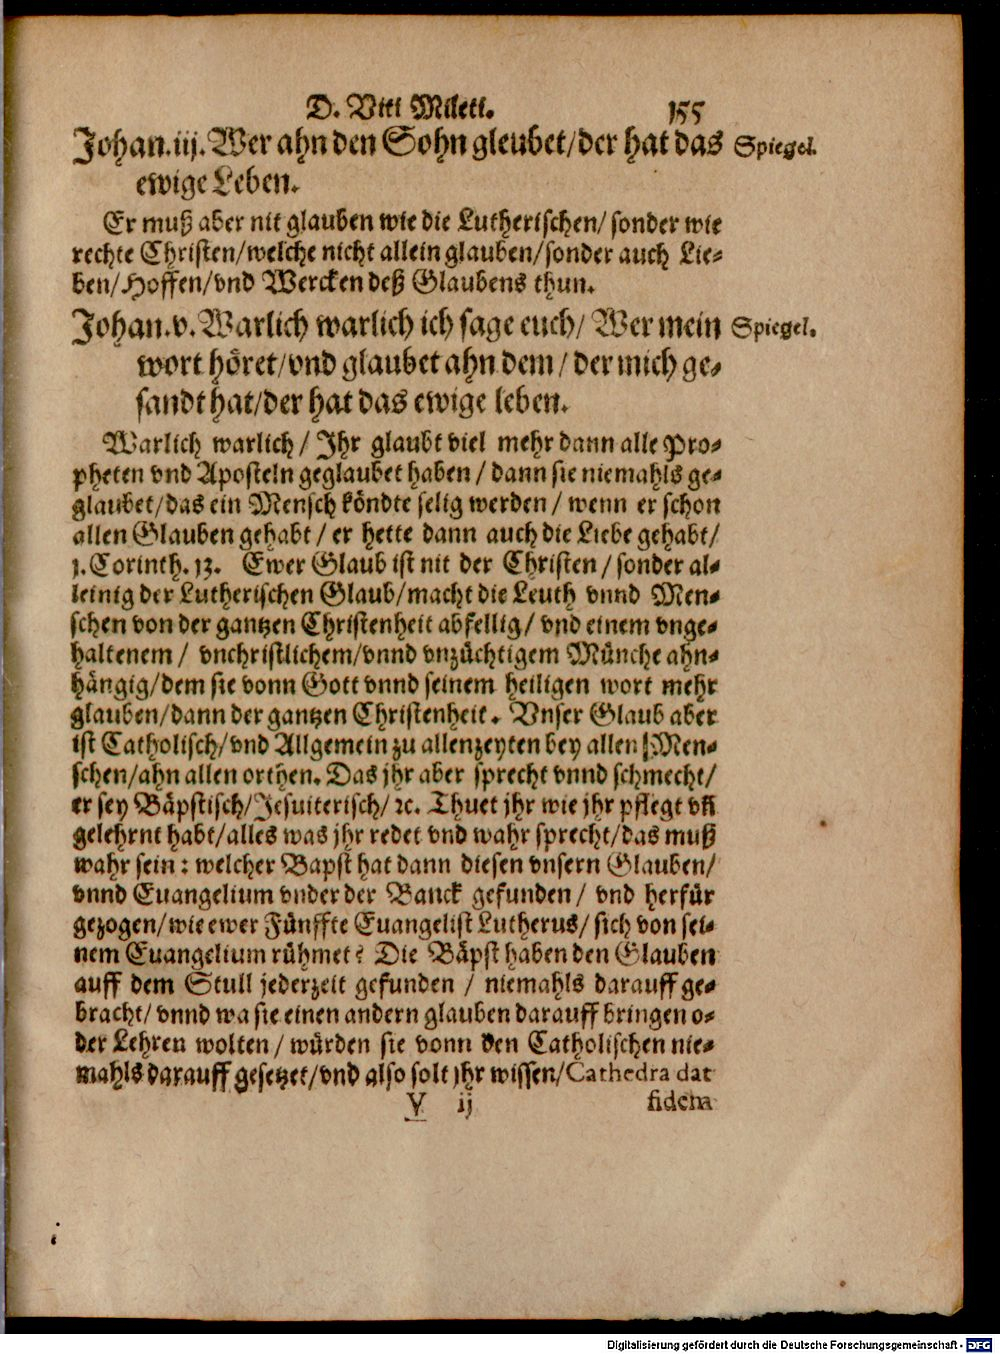 D. Viti Mileti. 155
Johan. iij. Wer ahn den Sohn gleubet/der hat das Spiegel.
ewige Leben.
Er muß aber nit glauben wie die Lutherischen/ sonder wie
rechte Christen/welche nicht allein glauben/sonder auch Lie-
ben/Hoffen/vnd Wercken deß Glaubens thun.
Johan. v. Warlich warlich ich sage euch/ Wer mein Spiegel.
wort höret/vnd glaubet ahn dem/ der mich ge-
sandt hat/der hat das ewige leben.
Warlich warlich/ Jhr glaubt viel mehr dann alle Pro-
pheten vnd Aposteln geglaubet haben/ dann sie niemahls ge-
glaubet/das ein Mensch köndte selig werden/ wenn er schon
allen Glauben gehabt/ er hette dann auch die Liebe gehabt/
1. Corinth. 13. Ewer Glaub ist nit der Christen/ sonder al-
leinig der Lutherischen Glaub/macht die Leuth vnnd Men-
schen von der gantzen Christenheit abfellig/ vnd einem vnge-
haltenem/ vnchristlichem/vnnd vnzüchtigem Münche ahn-
hängig/dem sie vonn Gott vnnd seinem heiligen wort mehr
glauben/dann der gantzen Christenheit. Vnser Glaub aber
ist Catholisch/vnd Allgemein zu allenzeyten bey allen Men-
schen/ahn allen orthen. Das jhr aber sprecht vnnd schmecht/
er sey Bäpstisch/Jesuiterisch/ꝛc. Thuet jhr wie jhr pflegt vñ
gelehrnt habt/alles was jhr redet vnd wahr sprecht/das muß
wahr sein: welcher Bapst hat dann diesen vnsern Glauben/
vnnd Euangelium vnder der Banck gefunden/ vnd herfür
gezogen/wie ewer Fünffte Euangelist Lutherus/ sich von sei-
nem Euangelium rühmet? Die Bäpst haben den Glauben
auff dem Stull jederzeit gefunden / niemahls darauff ge-
bracht/ vnnd wa sie einen andern glauben darauff bringen o-
der Lehren wolten/ würden sie vonn den Catholischen nie-
mahls darauff gesetzet/vnd also solt jhr wissen/Cathedra dat
V ij fidem
Digitalisierung gefördert durch die Deutsche Forschungsgemeinschaft - DFG